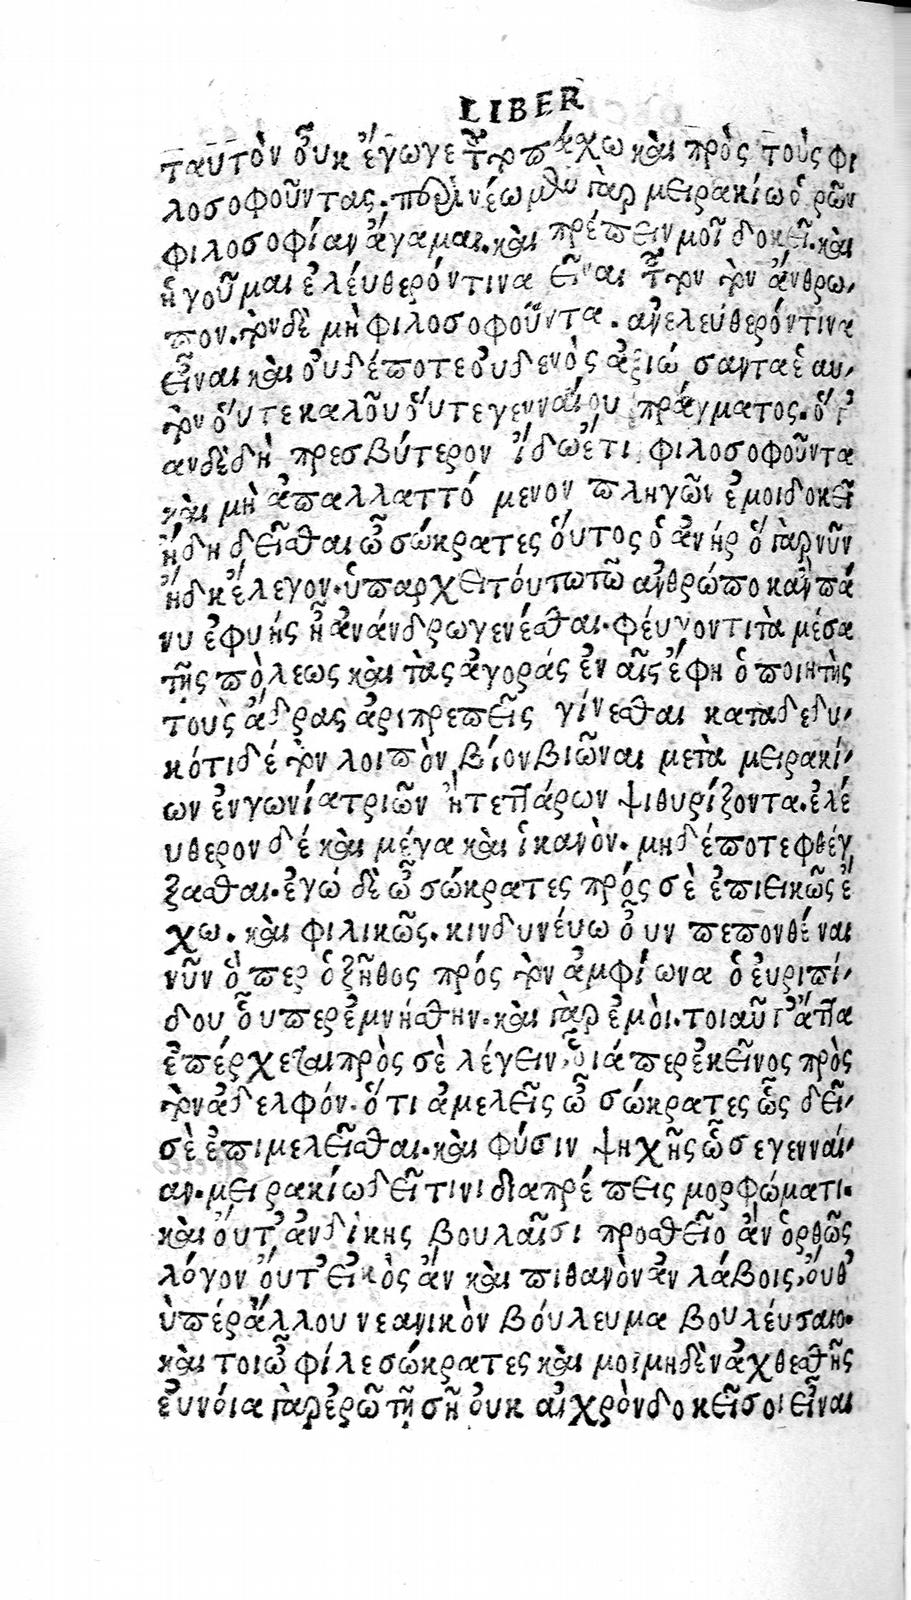 LIBER
ταυτὸν οὖν ἔγωγε τοῦτο πάχω καὶ πρὸς τοὺς φι
λοσοφοῦντας. παρὰ νέω μὲν γὰρ μειρακίω ὁρῶν
φιλοσοφίαν ἄγαμαι. καὶ πρέπειν μοῖ δοκεῖ. καὶ
ἡγοῦμαι ἐλέυθερόν τινα εἶναι τοῦτον τὸν ἄνθρω,
πον. τὸν δὲ μὴ φιλοσοφοῦντα. ανελεύθερόν τινα
εἶναι καὶ ουδέποτε ουδενὸς ἀξιώ σαντα ἑαυ,
τὸν ὄυτε καλοῦ ὄυτε γενναίου πράγματος. ὅτ
αν δὲ δὴ πρεσβύτερον ἴδω ἔτι φιλοσοφοῦντα
καὶ μὴ ἀπαλλαττόμενον πληγῶν ἐμοι δοκεῖ
ἤδη δεῖσθαι ὦ σώκρατες ὅυτος ὁ ἀνήρ ὅ γὰρ νῦν
ἤδκ ἔλεγον. ὑπαρχει τόυτω τῶ ανθρώπο κἀν πά
νυ εφυής ἦ ἀνάνδρω γενέσθαι. φέυγοντι τὰ μέσα
τῆς πὸλεως καὶ τὰς ἀγοράς ἐν αἷς ἔφη ὁ ποιητὴς
τουὺς ἄδρας ἀριπρεπεῖς γίνεσθαι καταδεδυ,
κότι δέ τὸν λοιπὸν βίον βιῶναι μετὰ μειρακί,
ων ἐν γωνία τριῶν ἠ τεττάρων ψιθυρίζοντα. ἐλέ
υθερον δέ καὶ μέγα καὶ ἱκανὸν. μηδέποτε φθέγ
ξασθαι. ἐγώ δὲ ὦ σώκρατες πρός σὲ ἐπιεικῶς ἔ
χω. καὶ φιλικῶς. κινδυνέυω ὖν πεπονθέναι
νῦν ὅπερ ὁ ζῆθος πρός τὸν ἀμφίωνα ὁ ἐυριπί,
δου ὗπερ ἐμνήσθην. καὶ γὰρ ἐμὸι. τοιαῦτ ἄττα
ἐπέρχεται πρὸς σὲ λέγειν, ὁιάπερ ἐκεῖνος πρὸς
τὸν ἀδελφόν. ὅτι ἀμελεῖς ὦ σώκρατες ὧς δεῖ,
σὲ ἐπιμελεῖσθαι. καὶ φύσιν ψηχῆς ὧσε γενναί,
αν. μειρακίωδεῖ τινι διαπρέπεις μορφώματι.
καὶ ὄυτ ἀν δίκης βουλαῖσι προσθεῖο ἀν ὀρθῶς
λόγον ὄυτ εἰκὸς ἀν καὶ πιθανὸν ἀν λάβοις, ὄυθ
ὑπέρ ἄλλου νεανικὸν βόυλευμα βουλέυσαιο.
καὶ τοι ὦ φίλε σώκρατες καὶ μοι μηδὲν ἀχθεσθῆς
ἐυνόια γὰρ ἐρῶ τῇ σῇ ὀυκ αἰχρὸν δοκεῖ σοι εἶναι